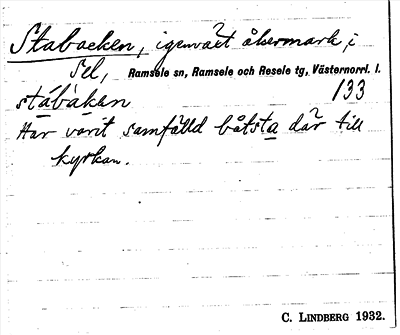 Stabacken, igenväxt åkermark, i
Sel, Ramsele sn, Ramsele och Resele tg, Västernorrl. l.
stáb̀àkan 133
Har varit samfälld båtsta där till
kyrkan.
C. LINDBERG 1932.